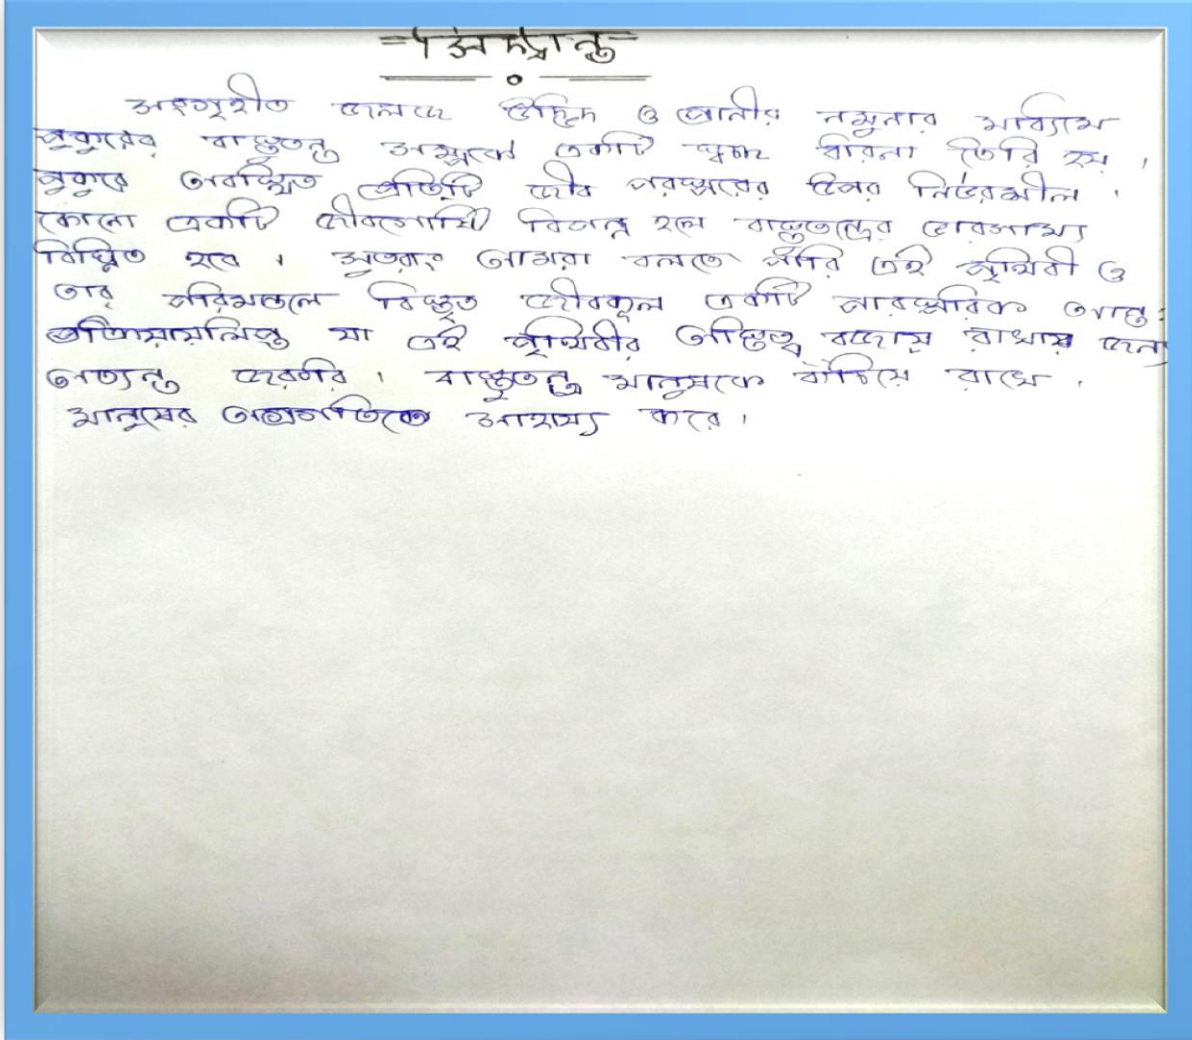 সিদ্ধান্ত
সংগৃহীত জলজ উদ্ভিদ ও প্রানীর নমুনার মাধ্যমে
পুকুরের বাস্তুতন্ত্র সম্পর্কে একটি স্বচ্ছ ধারনা তৈরি হয় ।
পুকুরে অবস্থিত প্রতিটি জীব পরস্পরের উপর নির্ভরশীল ।
কোনো একটি জীবগোষ্ঠি বিপন্ন হলে বাস্তুতন্ত্রের ভারসাম্য
বিঘ্নিত হবে । সুতরাং আমরা বলতে পারি এই পৃথিবী ও
তার পরিমন্ডলে বিস্তৃত জীবকূল একটি পারস্পরিক আন্তঃ
এই পৃথিবীর অস্তিত্ব বজায় রাখার জন্য
অত্যন্ত জরুরি । বাস্তুতন্ত্র মানুষকে বাঁচিয়ে রাখে ,
মানুষের অগ্রগতিতে সাহায্য করে ।